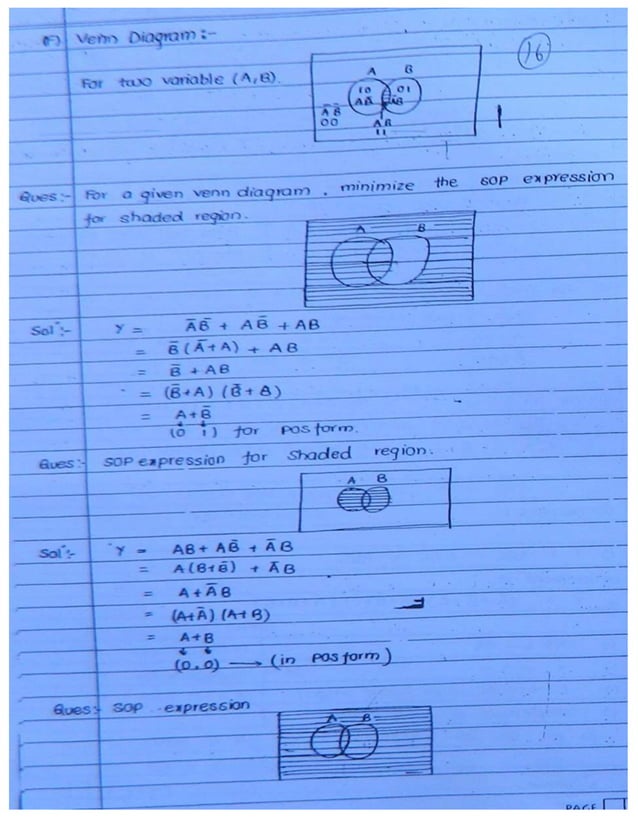 (7) Venn Diagram:-
(16)
For two variable (A,B).
A B
10 01
AB̄ ĀB
Ā B̄
00
AB
11
Ques:- For a given venn diagram, minimize the SOP expression
for shaded region.
A B
Solⁿ:- Y = ĀB̄ + AB̄ + AB
= B̄(Ā+A) + AB
= B̄ + AB
= (B̄+A) (B̄+B)
= A+B̄
(0 1) for pos form.
Ques:- SOP expression for shaded region.
A B
Solⁿ:- Y = AB + AB̄ + ĀB
= A(B+B̄) + ĀB
= A+ĀB
= (A+Ā) (A+B)
= A+B
(0,0) → (in pos form)
Ques:- SOP expression
A B
PAGE